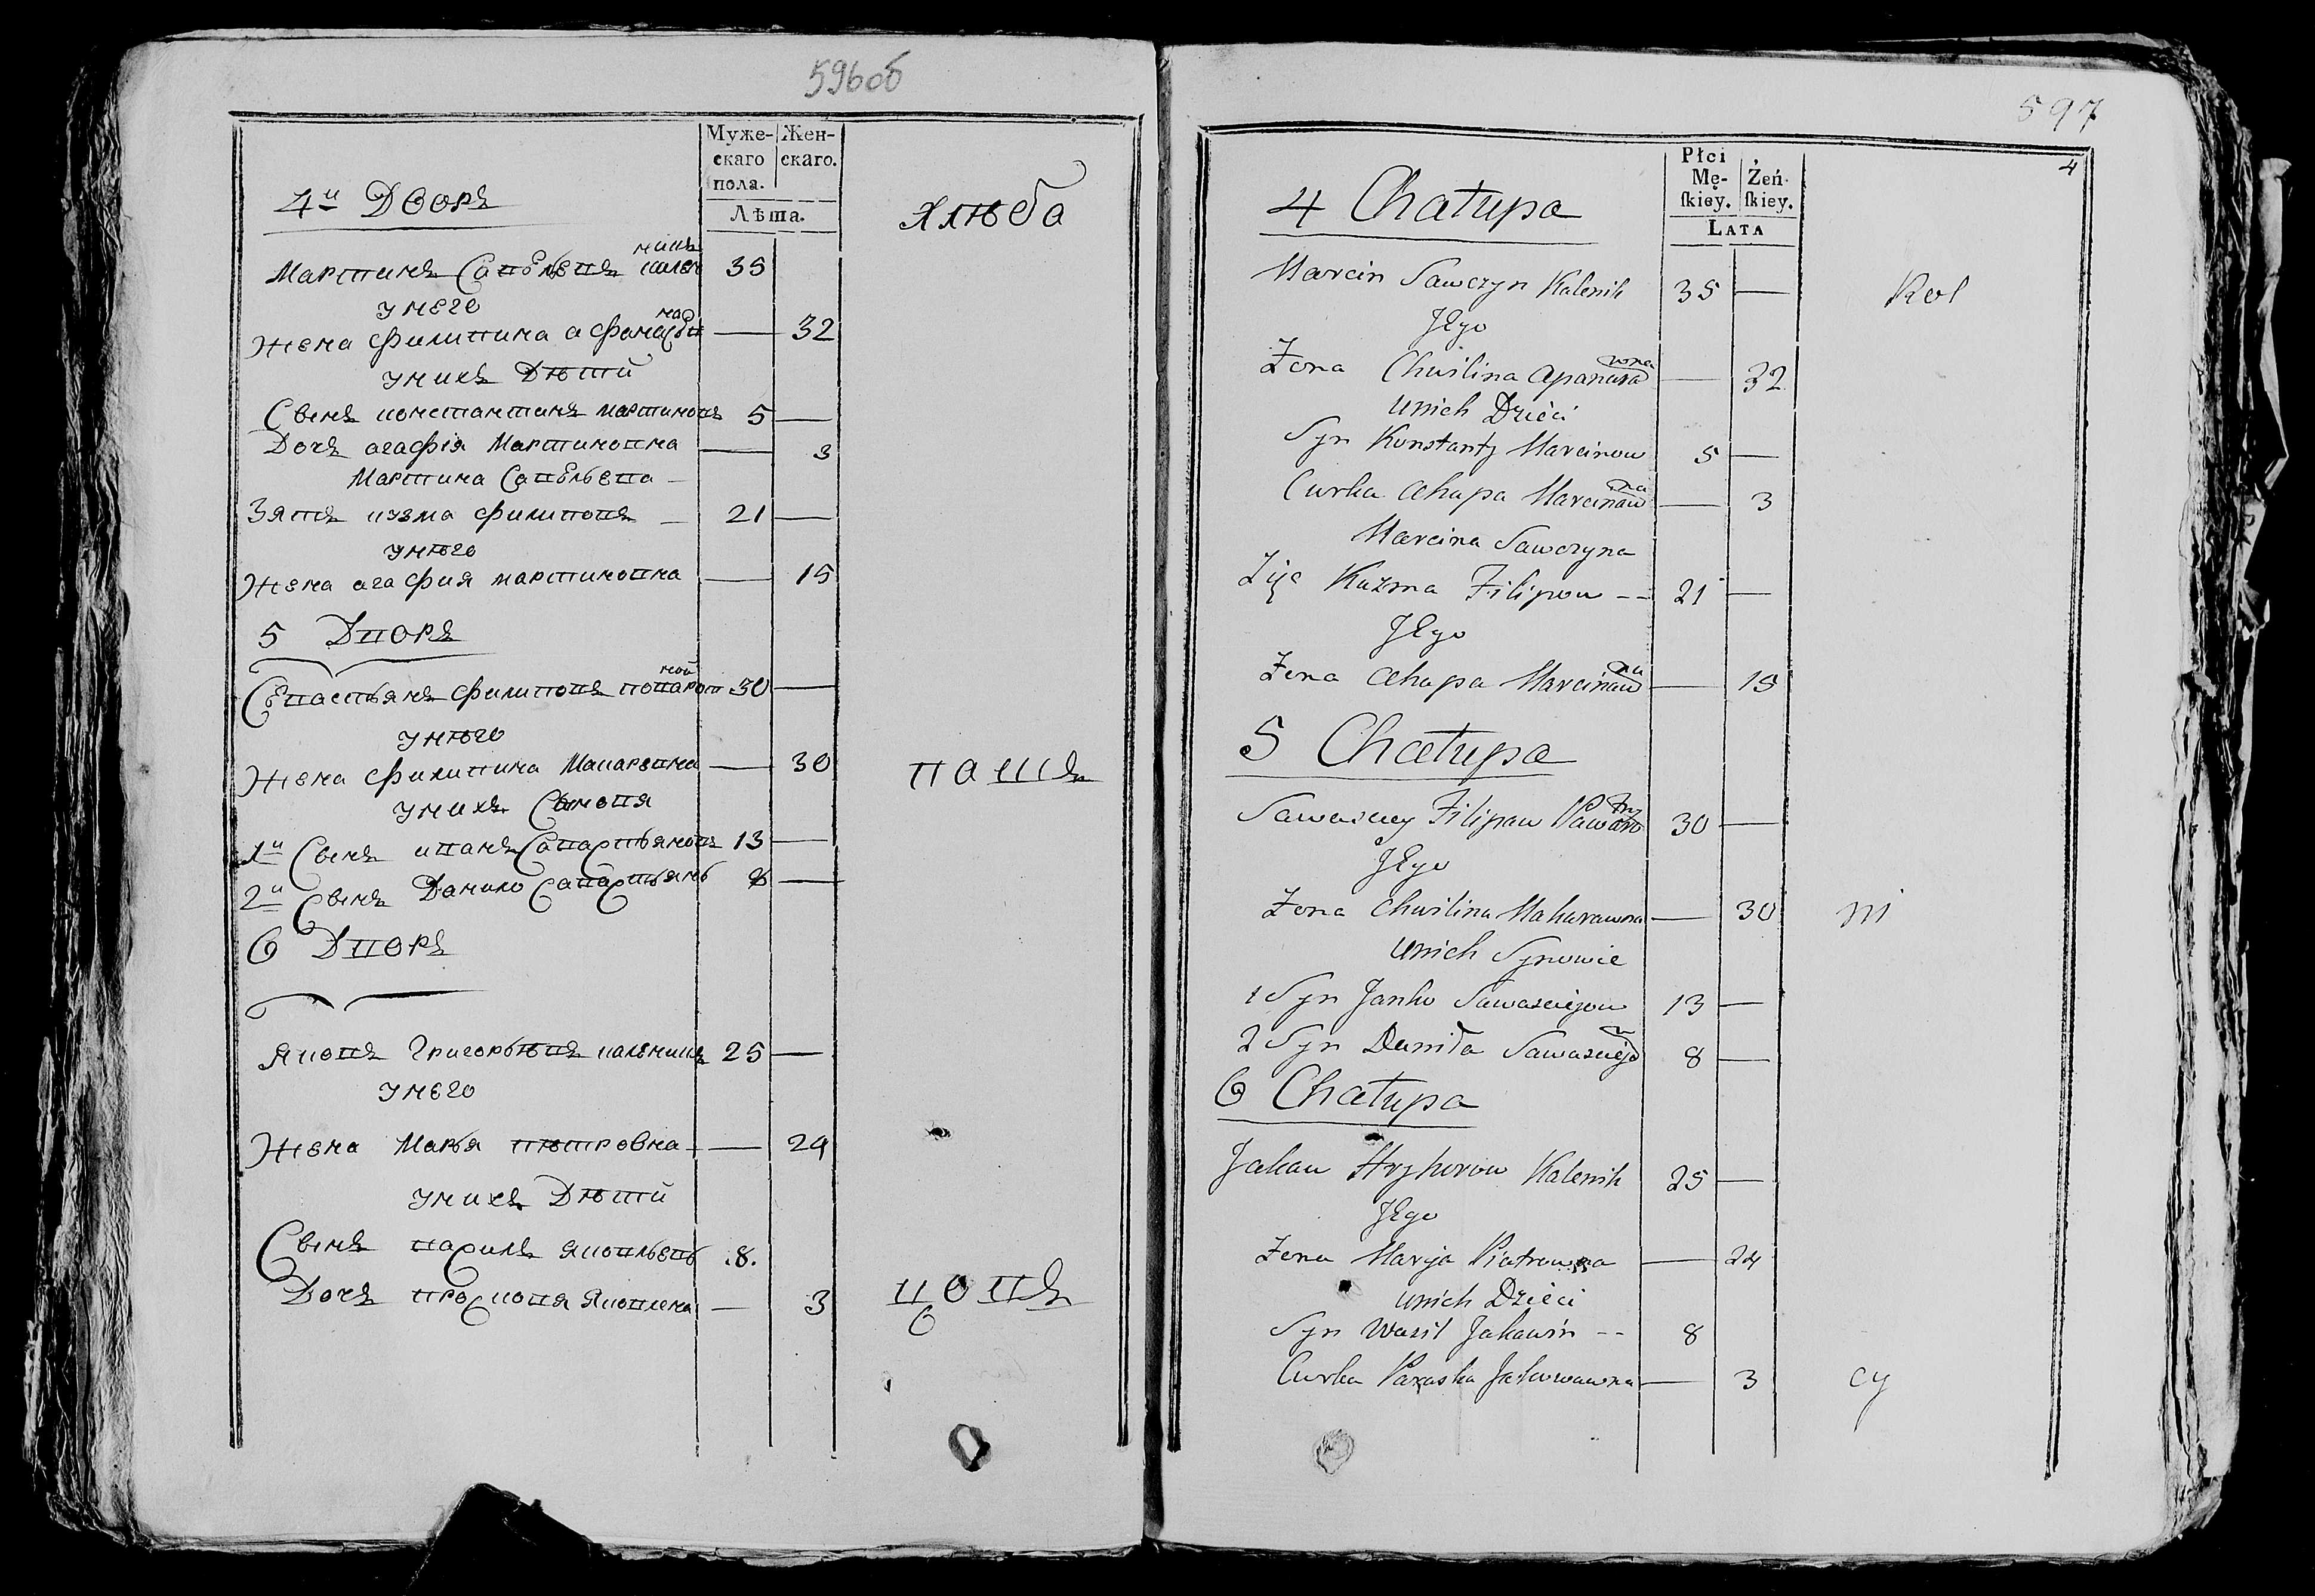 596об
Муже-
скаго
пола.
Жен-
скаго.
Лѣта.
4й Дворъ
хлѣба
Мартинъ Савельевъ кален
никъ
35
у него
Жена Филипина Афанасьв
на
32
у нихъ Дѣти
Сынъ Константинъ Мартиновъ 5
Дочь Агафія Мартиновна 3
Мартина Савельева
Зять Кузма Филиповъ 21
у нѣго
Жена Агафия Мартиновна 15
5 Дворъ
Севастьянъ Филиповъ Поваров
ной
30
у нѣго
Жена Филипина Макаревна 30
вашъ
у нихъ Сыновя
1й Сынъ Иванъ Савастьяновъ 13
2й Сынъ Данило Савастьянъ 8
6 Дворъ
Яковъ Григорьѣвъ Каленикъ 25
у него
Жена Марья Пѣтровна 24
у нихъ Дѣти
Сынъ Василь Яковльевъ .8.
Дочь Просковя Яковлена 3
ковъ
597
4
Płci
Mę-
skiey.
Żeń-
skiey.
LATA
4 Chałupa
Marcin Sawczyn Kalenik 35
Kol
Jego
Zona Chwilina Apanasa
wna
32
unich Dzieci
Syn Konstanty Marcinow 5
Curka Ahapa Marcinaw
na
3
Marcina Sawczyna
Zięc Kuzma Filipow -- 21
Jego
Zena Ahapa Marcinaw
na
15
5 Chałupa
Sawasciey Filipaw Pawaro
ny
30
Jego
Zona Chwilina Makarawna 30
ni
unich Synowie
1 Syn Janko Sawasciejow 13
2 Syn Daniła Sawasciejo
w
8
6 Chałupa
Jakau Hryhorow Kalenik 25
Jego
Zena Maryja Piatrowna 24
unich Dzieci
Syn Wasil Jakawin -- 8
Curka Paraska Jakowawna 3
cy